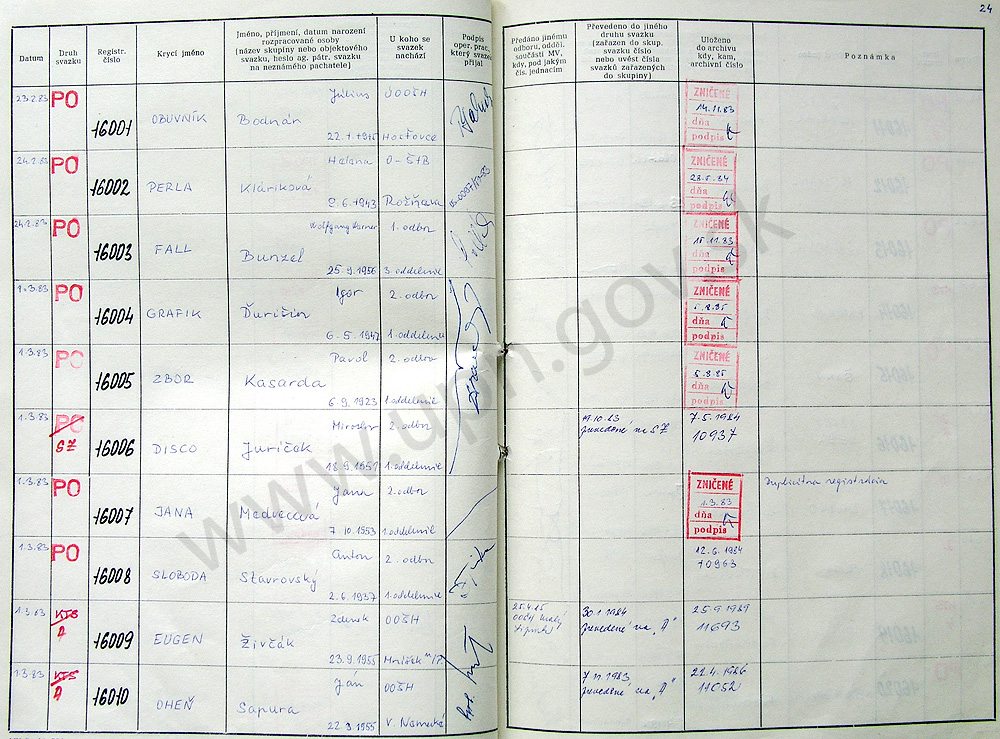 24
Datum
Druh svazku
Registr. číslo
Krycí jméno
Jméno, příjmení, datum narození
rozpracované osoby
(název skupiny nebo objektového
svazku, heslo ag. pátr. svazku
na neznámého pachatele)
U koho se
svazek
nachází
Podpis
oper. prac.,
který svazek
přijal
Předáno jinému
odboru, odděl.
součásti MV,
kdy, pod jakým
čís. jednacím
Převedeno do jiného
druhu svazku
(zařazen do skup.
svazku číslo
nebo uvést čísla
svazků zařazených
do skupiny)
Uloženo
do archivu
kdy, kam,
archivní číslo
Poznámka
23.2.83 PO 16001 OBUVNÍK
Július
Bodnár
22.1.1915
OOŠH
Hosťovce
ZNIČENÉ
14.11.83
dňa
podpis
24.2.83 PO 16002 PERLA
Helena
Kláriková
2.6.1943
O-ŠtB
Rožňava
ZNIČENÉ
28.5.84
dňa
podpis
24.2.83 PO 16003 FALL
Wolfgang Werner
Bunzel
25.9.1956
1. odbor
3. oddelenie
ZNIČENÉ
15.11.83
dňa
podpis
1.3.83 PO 16004 GRAFIK
Igor
Ďurišin
6.5.1947
2. odbor
1. oddelenie
ZNIČENÉ
5.8.85
dňa
podpis
1.3.83 PO 16005 ZBOR
Pavol
Kasarda
6.9.1923
2. odbor
1. oddelenie
ZNIČENÉ
5.8.85
dňa
podpis
1.3.83 PO SZ 16006 DISCO
Miroslav
Juríček
18.9.1957
2. odbor
1. oddelenie
19.10.83
prevedené na SZ
7.5.1984
10937
1.3.83 PO 16007 JANA
Jana
Medvecová
7.10.1953
2. odbor
1. oddelenie
ZNIČENÉ
1.3.83
dňa
podpis
Duplicitna registrácia
1.3.83 PO 16008 SLOBODA
Anton
Stavrovský
2.6.1937
2. odbor
1. oddelenie
12.6.1984
10963
1.3.83 KTS A 16009 EUGEN
Zdenek
Živčák
23.9.1955
OOŠH
30.1.1984
prevedené na "A"
25.9.1989
11693
1.3.83 KTS A 16010 OHEŇ
Ján
Sapura
22.9.1955
OOŠH
V. Nemecké
7.11.1983
prevedené na "A"
22.4.1986
www.upn.gov.sk